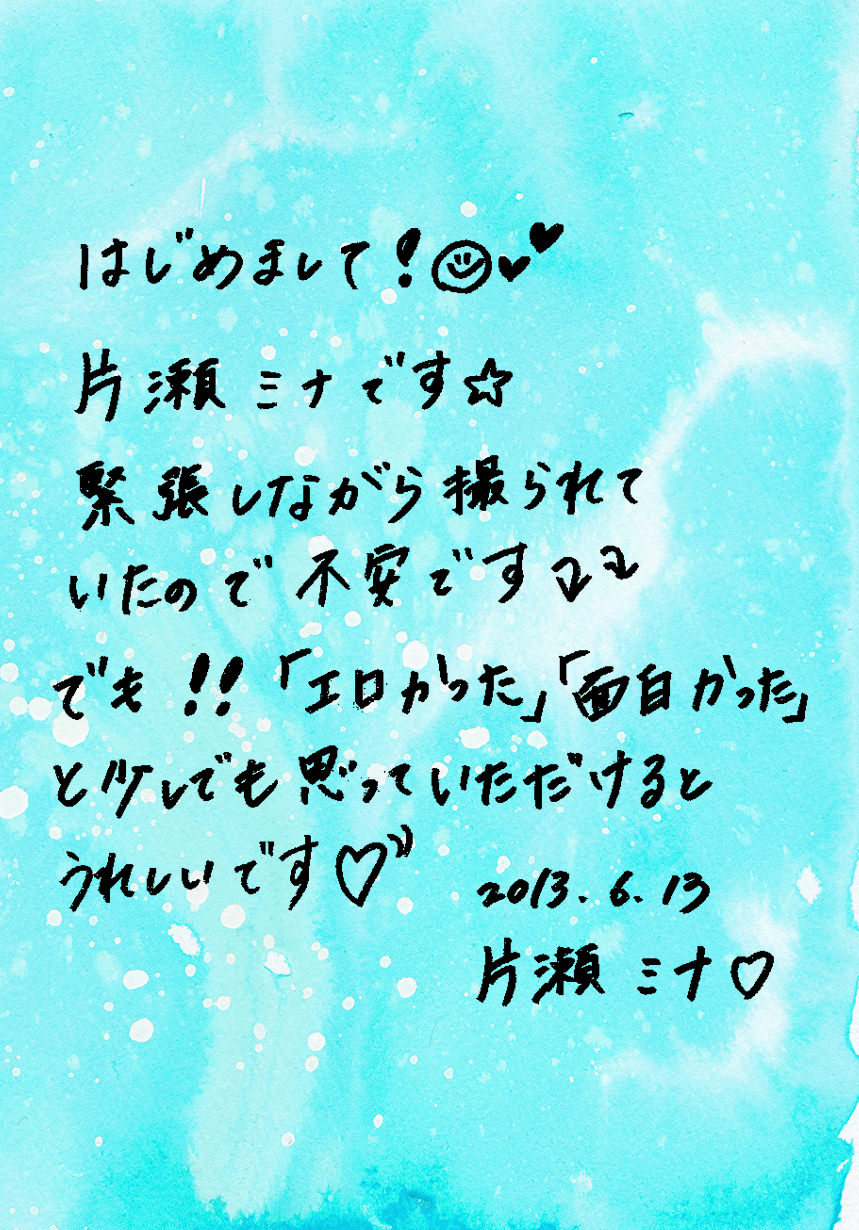 はじめまして!☺♥♥
片瀬ミナです☆
緊張しながら撮られて
いたので不安です⤵⤵
でも!!「エロかった」「面白かった」
と少しでも思っていただけると
うれしいです♡
2013.6.13
片瀬ミナ♡